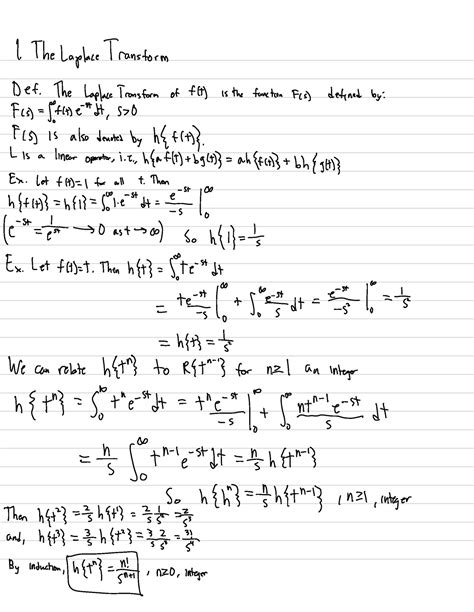 1. The Laplace Transform
Def. The Laplace Transform of f(t) is the function F(s) defined by:
F(s) = ∫₀^∞ f(t) e^{-st} dt, s>0
F(s) is also denoted by h{f(t)}.
L is a linear operator, i.e., h{a f(t) + b g(t)} = a h{f(t)} + b h{g(t)}
Ex. Let f(t)=1 for all t. Then
h{f(t)} = h{1} = ∫₀^∞ 1·e^{-st} dt = e^{-st}/-s |₀^∞
(e^{-st} = 1/e^{st} → 0 as t → ∞) So h{1} = 1/s
Ex. Let f(t)=t. Then h{t} = ∫₀^∞ t e^{-st} dt
= te^{-st}/-s |₀^∞ + ∫₀^∞ e^{-st}/s dt = e^{-st}/-s² |₀^∞ = 1/s²
= h{t} = 1/s²
We can relate h{tⁿ} to R{t^{n-1}} for n≥1 an integer
h{tⁿ} = ∫₀^∞ tⁿ e^{-st} dt = tⁿ e^{-st}/-s |₀^∞ + ∫₀^∞ nt^{n-1} e^{-st}/s dt
= n/s ∫₀^∞ t^{n-1} e^{-st} dt = n/s h{t^{n-1}}
So h{hⁿ} = n/s h{t^{n-1}}, n≥1, integer
Then h{t²} = 2/s h{t¹} = 2/s 1/s² = 2/s³
and, h{t³} = 3/s h{t²} = 3/s 2/s³ = 3!/s⁴
By induction, h{tⁿ} = n!/s^{n+1}, n≥0, integer